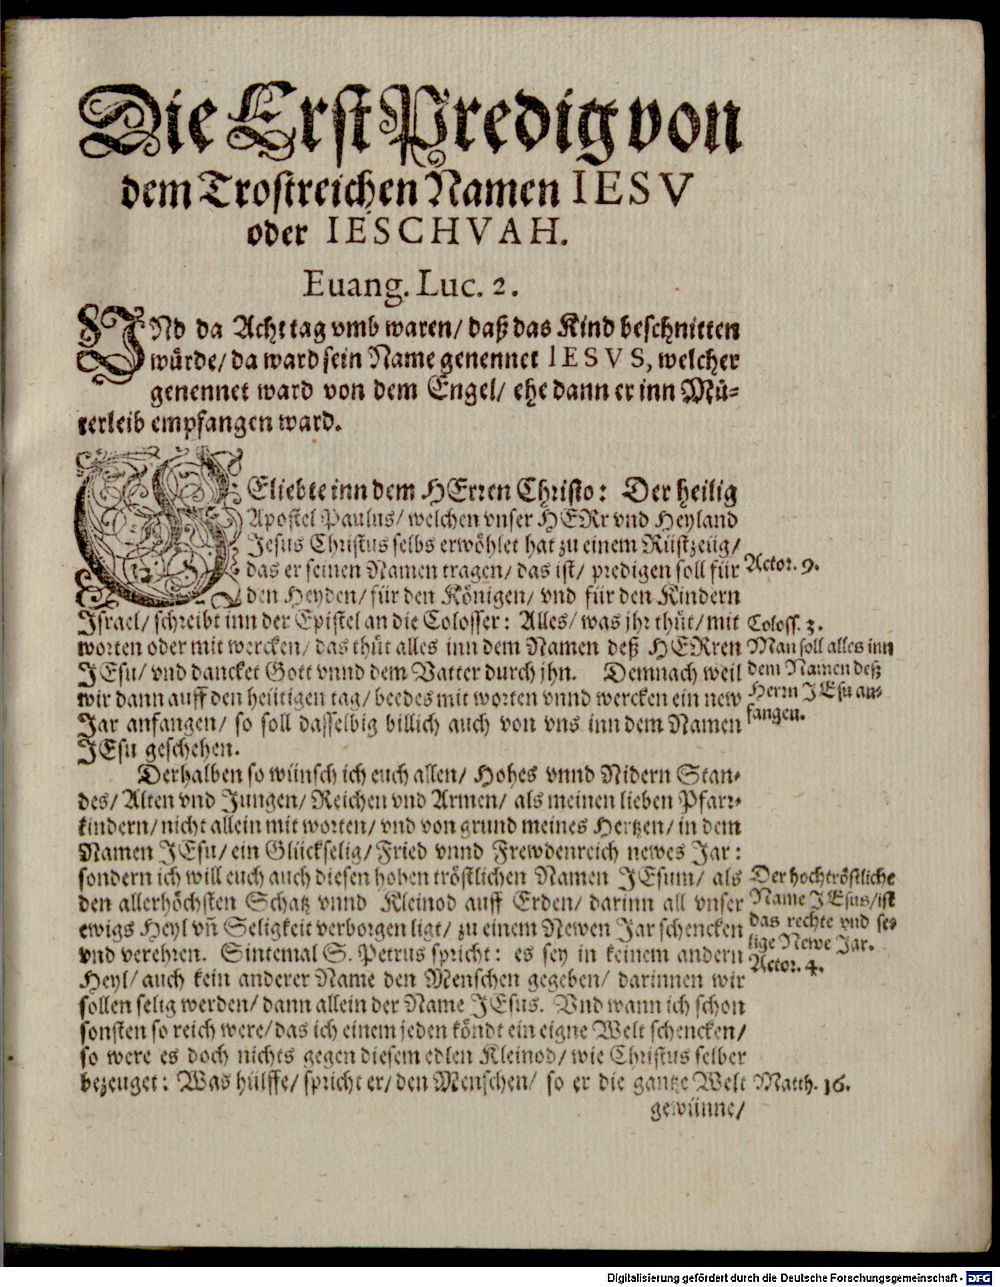 Die Erst Predig von
dem Trostreichen Namen IESV
oder IESCHVAH.
Euang. Luc. 2.
VNd da Acht tag vmb waren/ daß das Kind beschnitten
würde/ da ward sein Name genennet IESVS, welcher
genennet ward von dem Engel/ ehe dann er inn Mü-
terleib empfangen ward.
GEliebte inn dem HErren Christo: Der heilig
Apostel Paulus/ welchen vnser HERr vnd Heyland
Jesus Christus selbs erwöhlet hat zu einem Rüstzeüg/
das er seinen Namen tragen/ das ist/ predigen soll für
Actor. 9.
den Heyden/ für den Königen/ vnd für den Kindern
Israel/ schreibt inn der Epistel an die Colosser: Alles/ was jhr thüt/ mit
Coloss. 3.
worten oder mit wercken/ das thüt alles inn dem Namen deß HERren
Man soll alles inn
JEsu/ vnd dancket Gott vnnd dem Vatter durch jhn. Demnach weil
dem Namen deß
wir dann auff den heütigen tag/ beedes mit worten vnnd wercken ein new
Herrn JEsu an-
Jar anfangen/ so soll dasselbig billich auch von vns inn dem Namen
fangen.
JEsu geschehen.
Derhalben so wünsch ich euch allen/ Hohes vnnd Nidern Stan-
des/ Alten vnd Jungen/ Reichen vnd Armen/ als meinen lieben Pfarr-
kindern/ nicht allein mit worten/ vnd von grund meines Hertzen/ in dem
Namen JEsu/ ein Glückselig/ Fried vnnd Frewdenreich newes Jar:
sondern ich will euch auch diesen hohen tröstlichen Namen JEsum/ als
Der hochtröstliche
den allerhöchsten Schatz vnnd Kleinod auff Erden/ darinn all vnser
Name JEsus/ ist
ewigs Heyl vn̄ Seligkeit verborgen ligt/ zu einem Newen Jar schencken
das rechte vnd se-
lige Newe Jar.
vnd verehren. Sintemal S. Petrus spricht: es sey in keinem andern
Actor. 4.
Heyl/ auch kein anderer Name den Menschen gegeben/ darinnen wir
sollen selig werden/ dann allein der Name JEsus. Vnd wann ich schon
sonsten so reich were/ das ich einem jeden köndt ein eigne Welt schencken/
so were es doch nichts gegen diesem edlen Kleinod/ wie Christus selber
bezeuget: Was hülffe/ spricht er/ den Menschen/ so er die gantze Welt
Matth. 16.
gewünne/
Digitalisierung gefördert durch die Deutsche Forschungsgemeinschaft - DFG